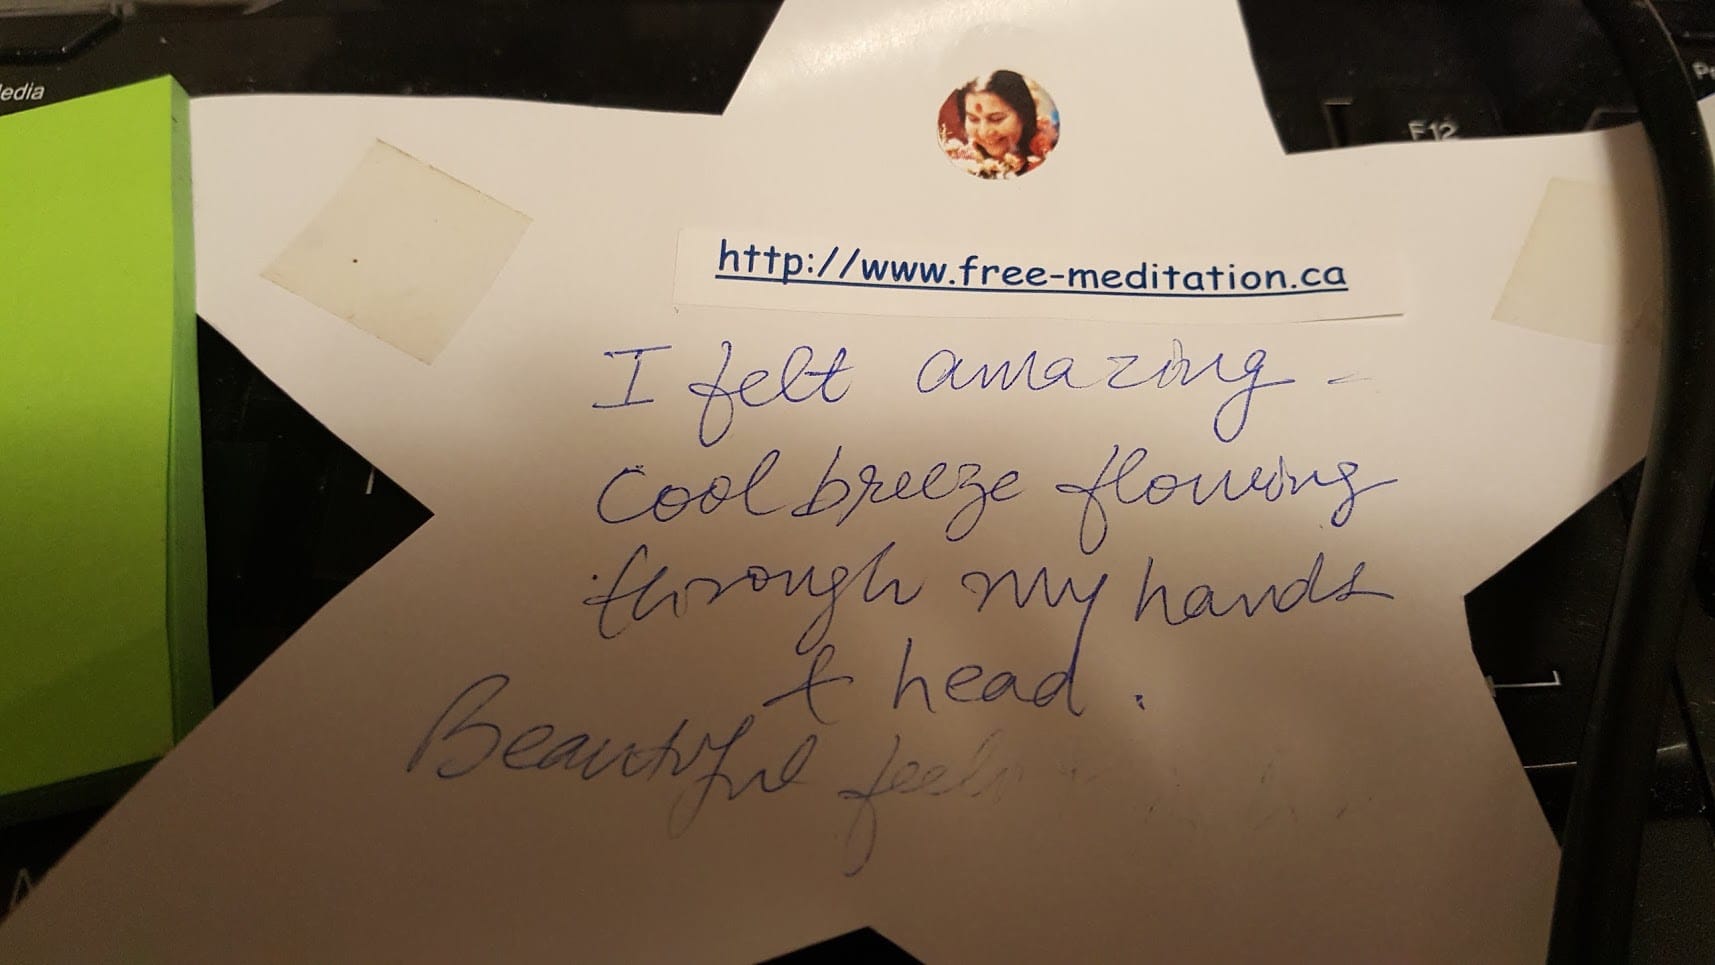 edia
F12
http://www.free-meditation.ca
I felt amazing -
cool breeze flowing
through my hands
& head.
Beautiful